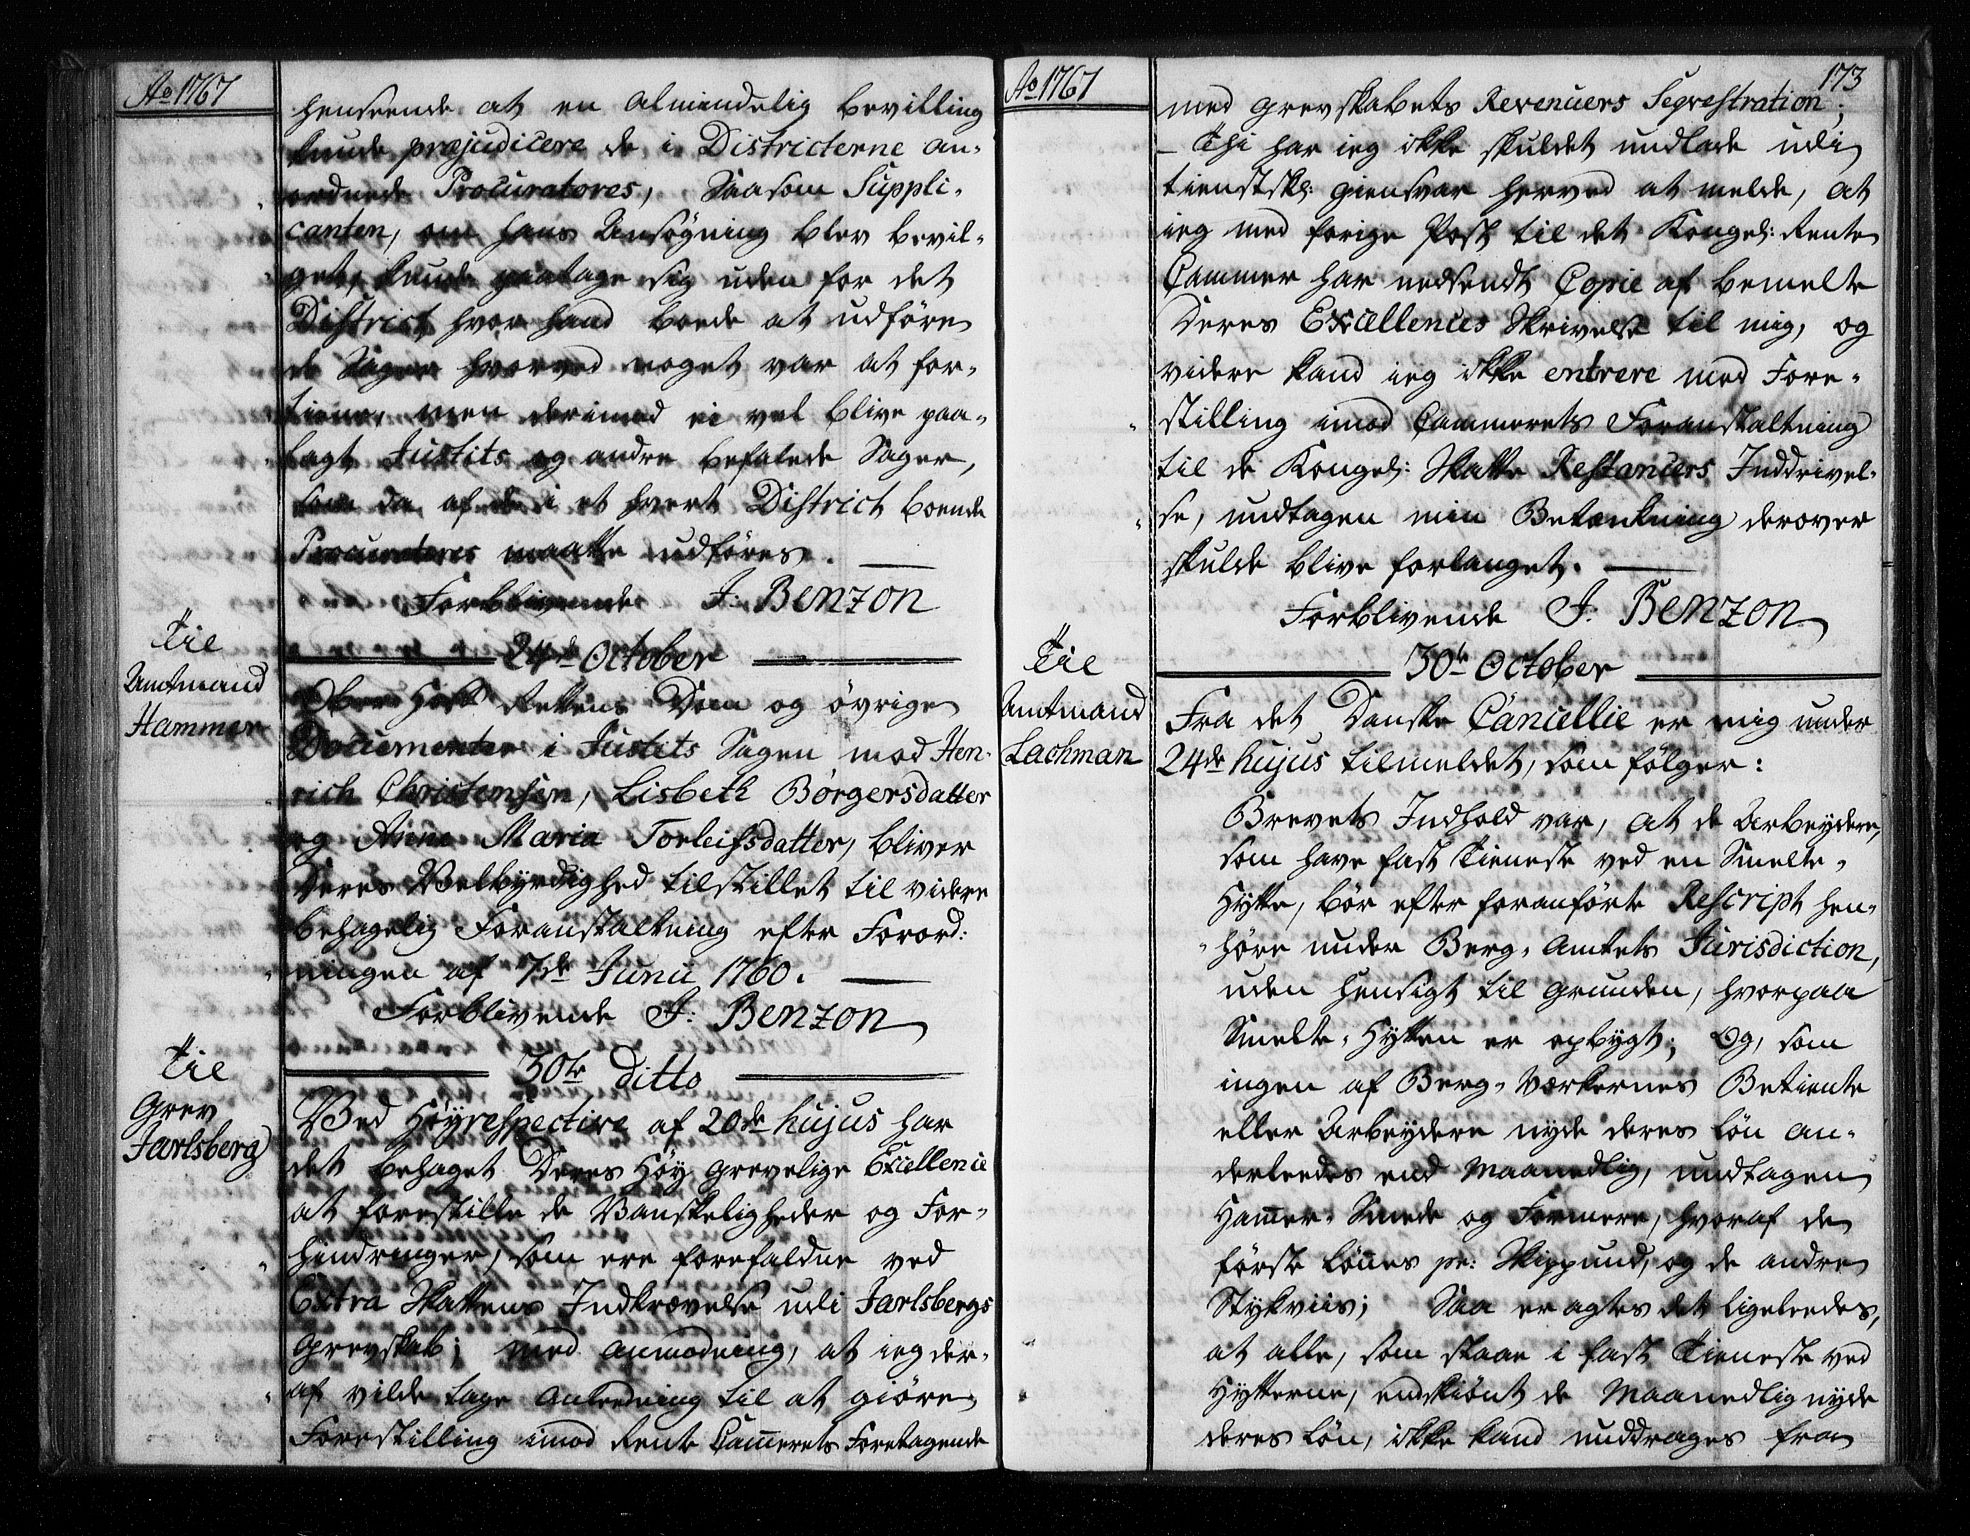 Ao 1767
henseende at en Almindelig Bevilling
kunde præjudicere de i Districterne an-
ordnede Procuratores, Saasom Suppli-
canten, om hans Ansøgning blev bevil-
get, kunde paatage sig uden for det
District, hvor hand boede at udføre
de Sager hvorved noget var at for-
tiene, men derimod ei vel blive paa-
lagt Justits og andre befalede Sager,
som da af de i et hvert District boende
Procuratores maatte udføres.
Forblivende J: Benzon
24de October
Til
Amtmand
Hammer
Over Hof Rettens Dom og øvrige
Documenter i Justits Sagen mod Hen-
rich Christensen, Lisbeth Børgersdatter
og Anne Maria Torleifsdatter, bliver
Deres Velbyrdighed tilstillet til videre
behagelig Foranstaltning efter Forord:
ningen af 7de Junii 1760.
Forblivende J: Benzon
30te ditto
Til
Grev
Jarlsberg
Ved Høyrespective af 20de hujus har
det behaget Deres Høy Grevelige Excellence
at forestille de Vanskeligheder og For-
hindringer, som ere forefaldne ved
Extra Skattens Indkrævelse udi Jarlsbergs
Grevskab; med Anmodning, at ieg der-
af vilde tage Anledning til at giøre
Forestilling imod Rente Cammerets Foretagende
Ao 1767
173
med Grevskabets Revenuers Seqvestration;
- Thi har ieg ikke skuldet undlade udi
tienstskl: giensvar herved at melde, at
ieg med forige Post til det Kongel: Rente
Cammer har nedsendt Copie af bemelte
Deres Excellences Skrivelse til mig, og
videre kand ieg ikke entrere med Fore-
stilling imod Cammerets Foranstaltning
til de Kongel: Skatte Restancers Inddrivel-
se, undtagen min Betænkning derover
skulde blive forlanget.
Forblivende J: Benzon
30te October
Til
Amtmand
Lachman
Fra det Danske Cancellie er mig under
24de hujus tilmeldet, som følger:
Brevets Indhold var, At de Arbeydere,
som have fast Tieneste ved en Smelte-
Hytte, bør efter foranførte Rescript hen-
høre under Berg-Amtets Jurisdiction,
uden Hensigt til Grunden, hvorpaa
Smelte-Hytten er opbygt; Og, som
ingen af Berg-Værkernes Betiente
eller Arbeydere nyde deres Løn an-
derledes end Maanedlig, undtagen
Hammer-Smede og Formere, hvoraf de
første lønnes pr: Skippund, og de andre
Stykviis; Saa eragtes det ligeledes,
at alle, som staae i fast Tieneste ved
Hytterne, endskiønt de Maanedlig nyde
deres Løn, ikke kand unddrages fra